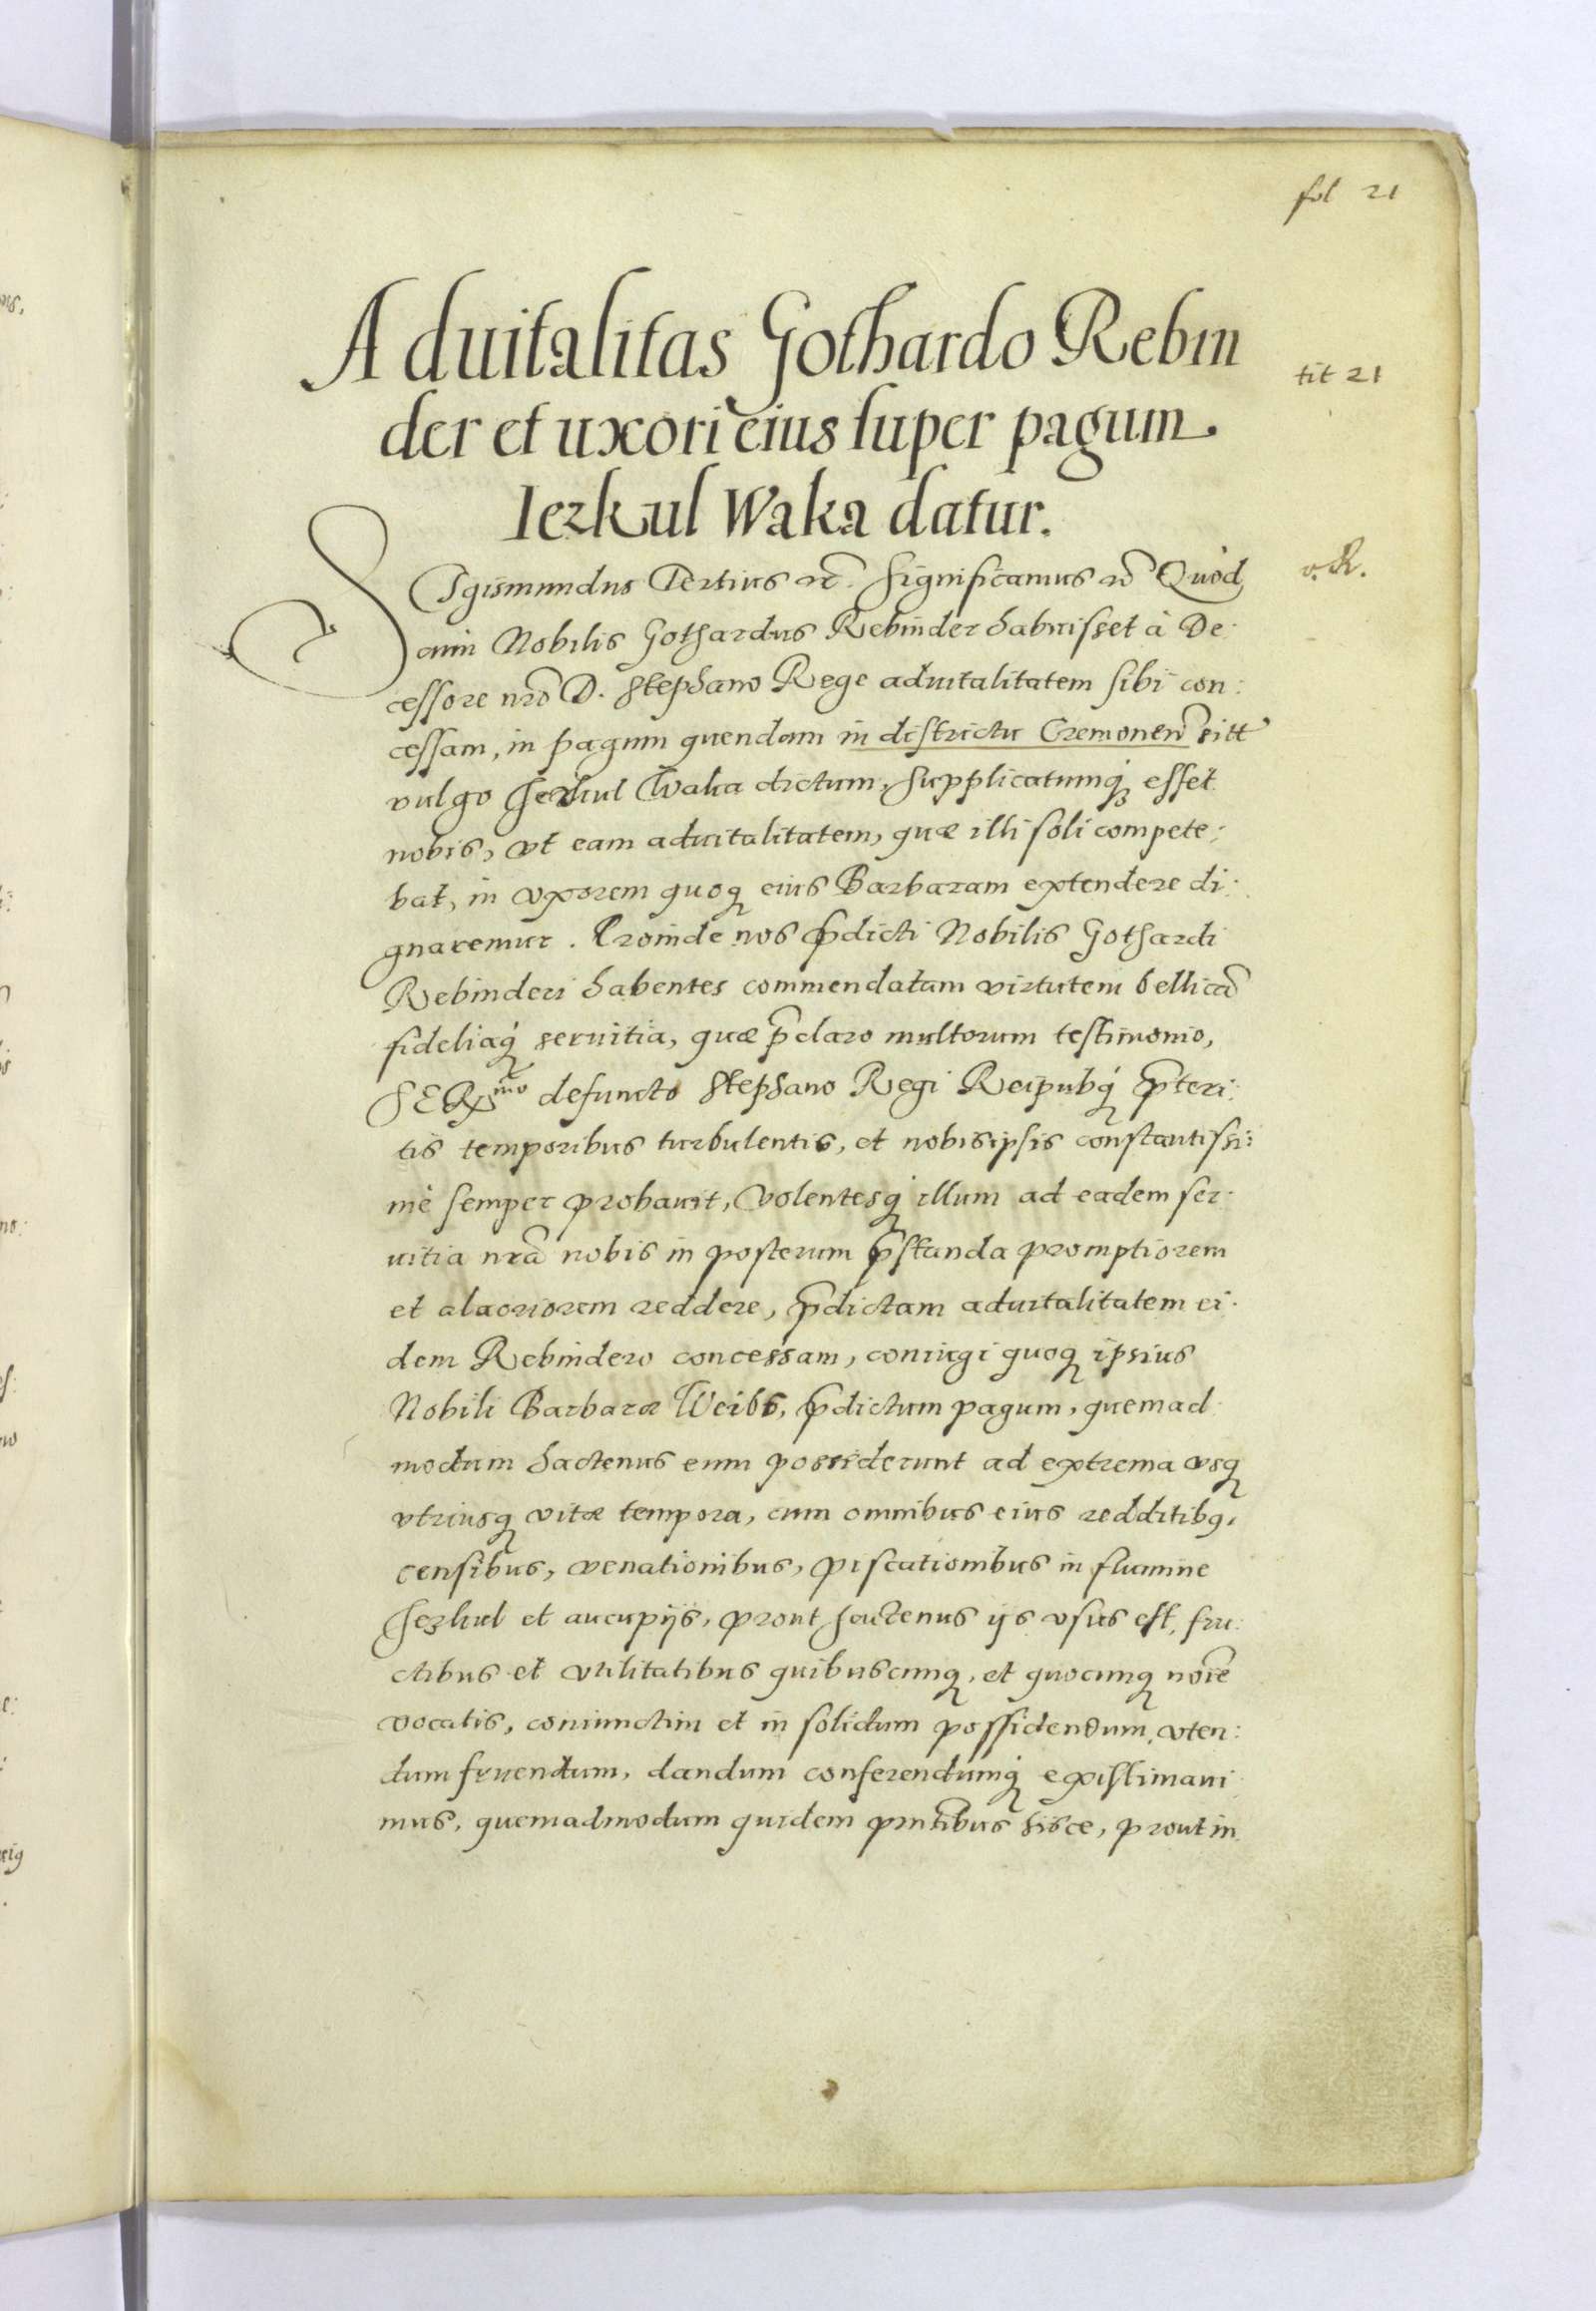 fol 21
Aduitalitas Gothardo Rebin
tit 21
der et uxori eius super pagum
Iezkul Waka datur.
SIgismundus Tertius etc. Significamus etc Quòd
v. R.
cum Nobilis Gothardus Rebinder habuisset à De:
cessore nrõ D. Stephano Rege aduitalitatem sibi con:
cessam, in pagum quendam in districtu Cremonen̄ sitũ
vulgo Jezkul Waka dictum, supplicatumq́; esset
nobis, vt eam aduitalitatem, quæ illi soli compete:
bat, in vxorem quoq; eius Barbaram extendere di:
gnaremur. Proinde nos p̃dicti Nobilis Gothardi
Rebinderi habentes commendatam virtutem bellicã
fideliaq́; seruitia, quæ p̃claro multorum testimonio,
SERmo defuncto Stephano Regi Reipubq́; p̃teri:
tis temporibus turbulentis, et nobisipsis constantissi:
mè semper probauit, Volentesq́; illum ad eadem ser:
uitia nrã nobis in posterum p̃standa promptiorem
et alacriorem reddere, p̃dictam aduitalitatem ei:
dem Rebindero concessam, coniugi quoq; ipsius
Nobili Barbaræ Weibs, p̃dictum pagum, quemad:
modum hactenus eum possiderunt ad extrema vsq;
vtriusq; vitæ tempora, cum omnibus eius redditibq,
censibus, venationibus, piscationibus in flumine
Jezkul et aucupijs, prout hactenus ijs vsus est, fru:
ctibus et vtilitatibus quibuscunq;, et quocunq; noĩe
vocatis, coniunctim et in solidum possidendum, vten:
dum fruendum, dandum conferendumq́; existimaui:
mus, quemadmodum quidem pñtibus hisce, prout in